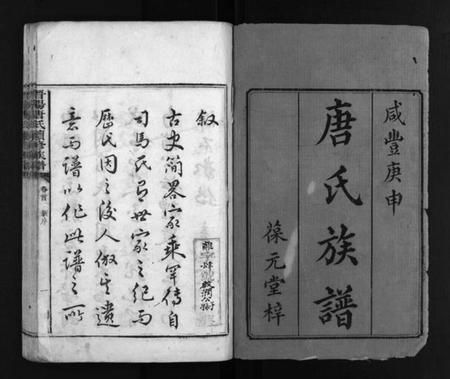 咸豐庚申
唐氏族譜
葆元堂梓
敘
古史簡畧家乘罕傳自
司馬氏有世家之紀而
歷民因之後人倣其遺
意而譜以作此譜之所
卷首 新序